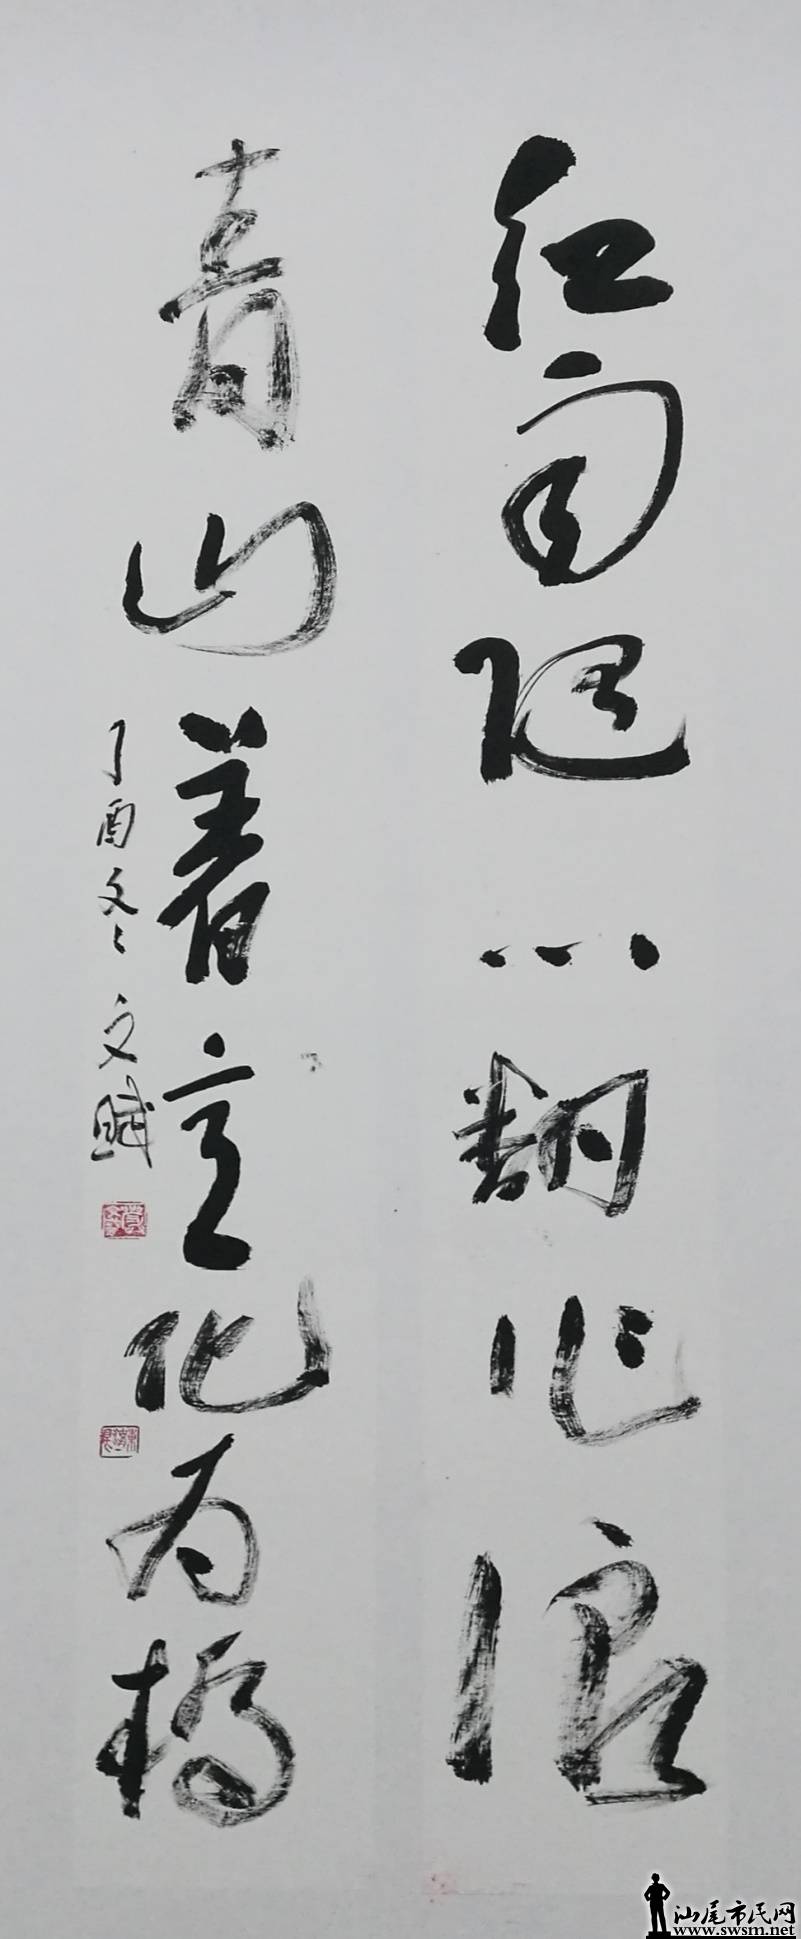 红雨随心翻作浪
青山著意化为桥
丁酉冬 文赋
汕尾市民网
www.swsm.net